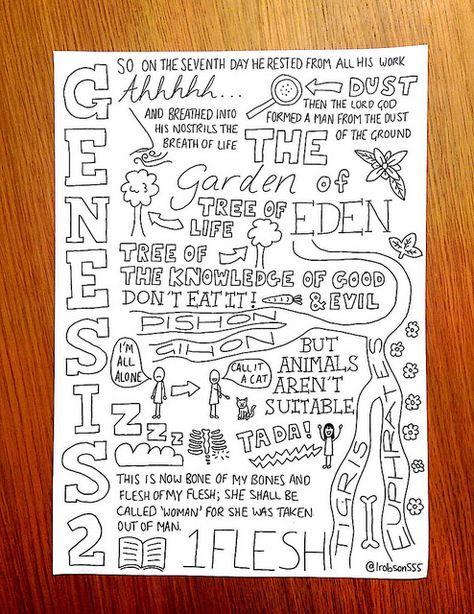 GENESIS 2
SO ON THE SEVENTH DAY HE RESTED FROM ALL HIS WORK
Ahhhhh...
DUST
AND BREATHED INTO
HIS NOSTRILS THE
BREATH OF LIFE
THEN THE LORD GOD
FORMED A MAN FROM THE DUST
OF THE GROUND
THE
Garden of
EDEN
TREE OF
LIFE
TREE OF
THE KNOWLEDGE OF GOOD
& EVIL
DON'T EAT IT!
PISHON
GIHON
I'M
ALL
ALONE
CALL IT
A CAT
BUT
ANIMALS
AREN'T
SUITABLE
ZZZZ
TADA!
TIGRIS
EUPHRATES
THIS IS NOW BONE OF MY BONES AND
FLESH OF MY FLESH; SHE SHALL BE
CALLED 'WOMAN' FOR SHE WAS TAKEN
OUT OF MAN.
1 FLESH
@lrobson555